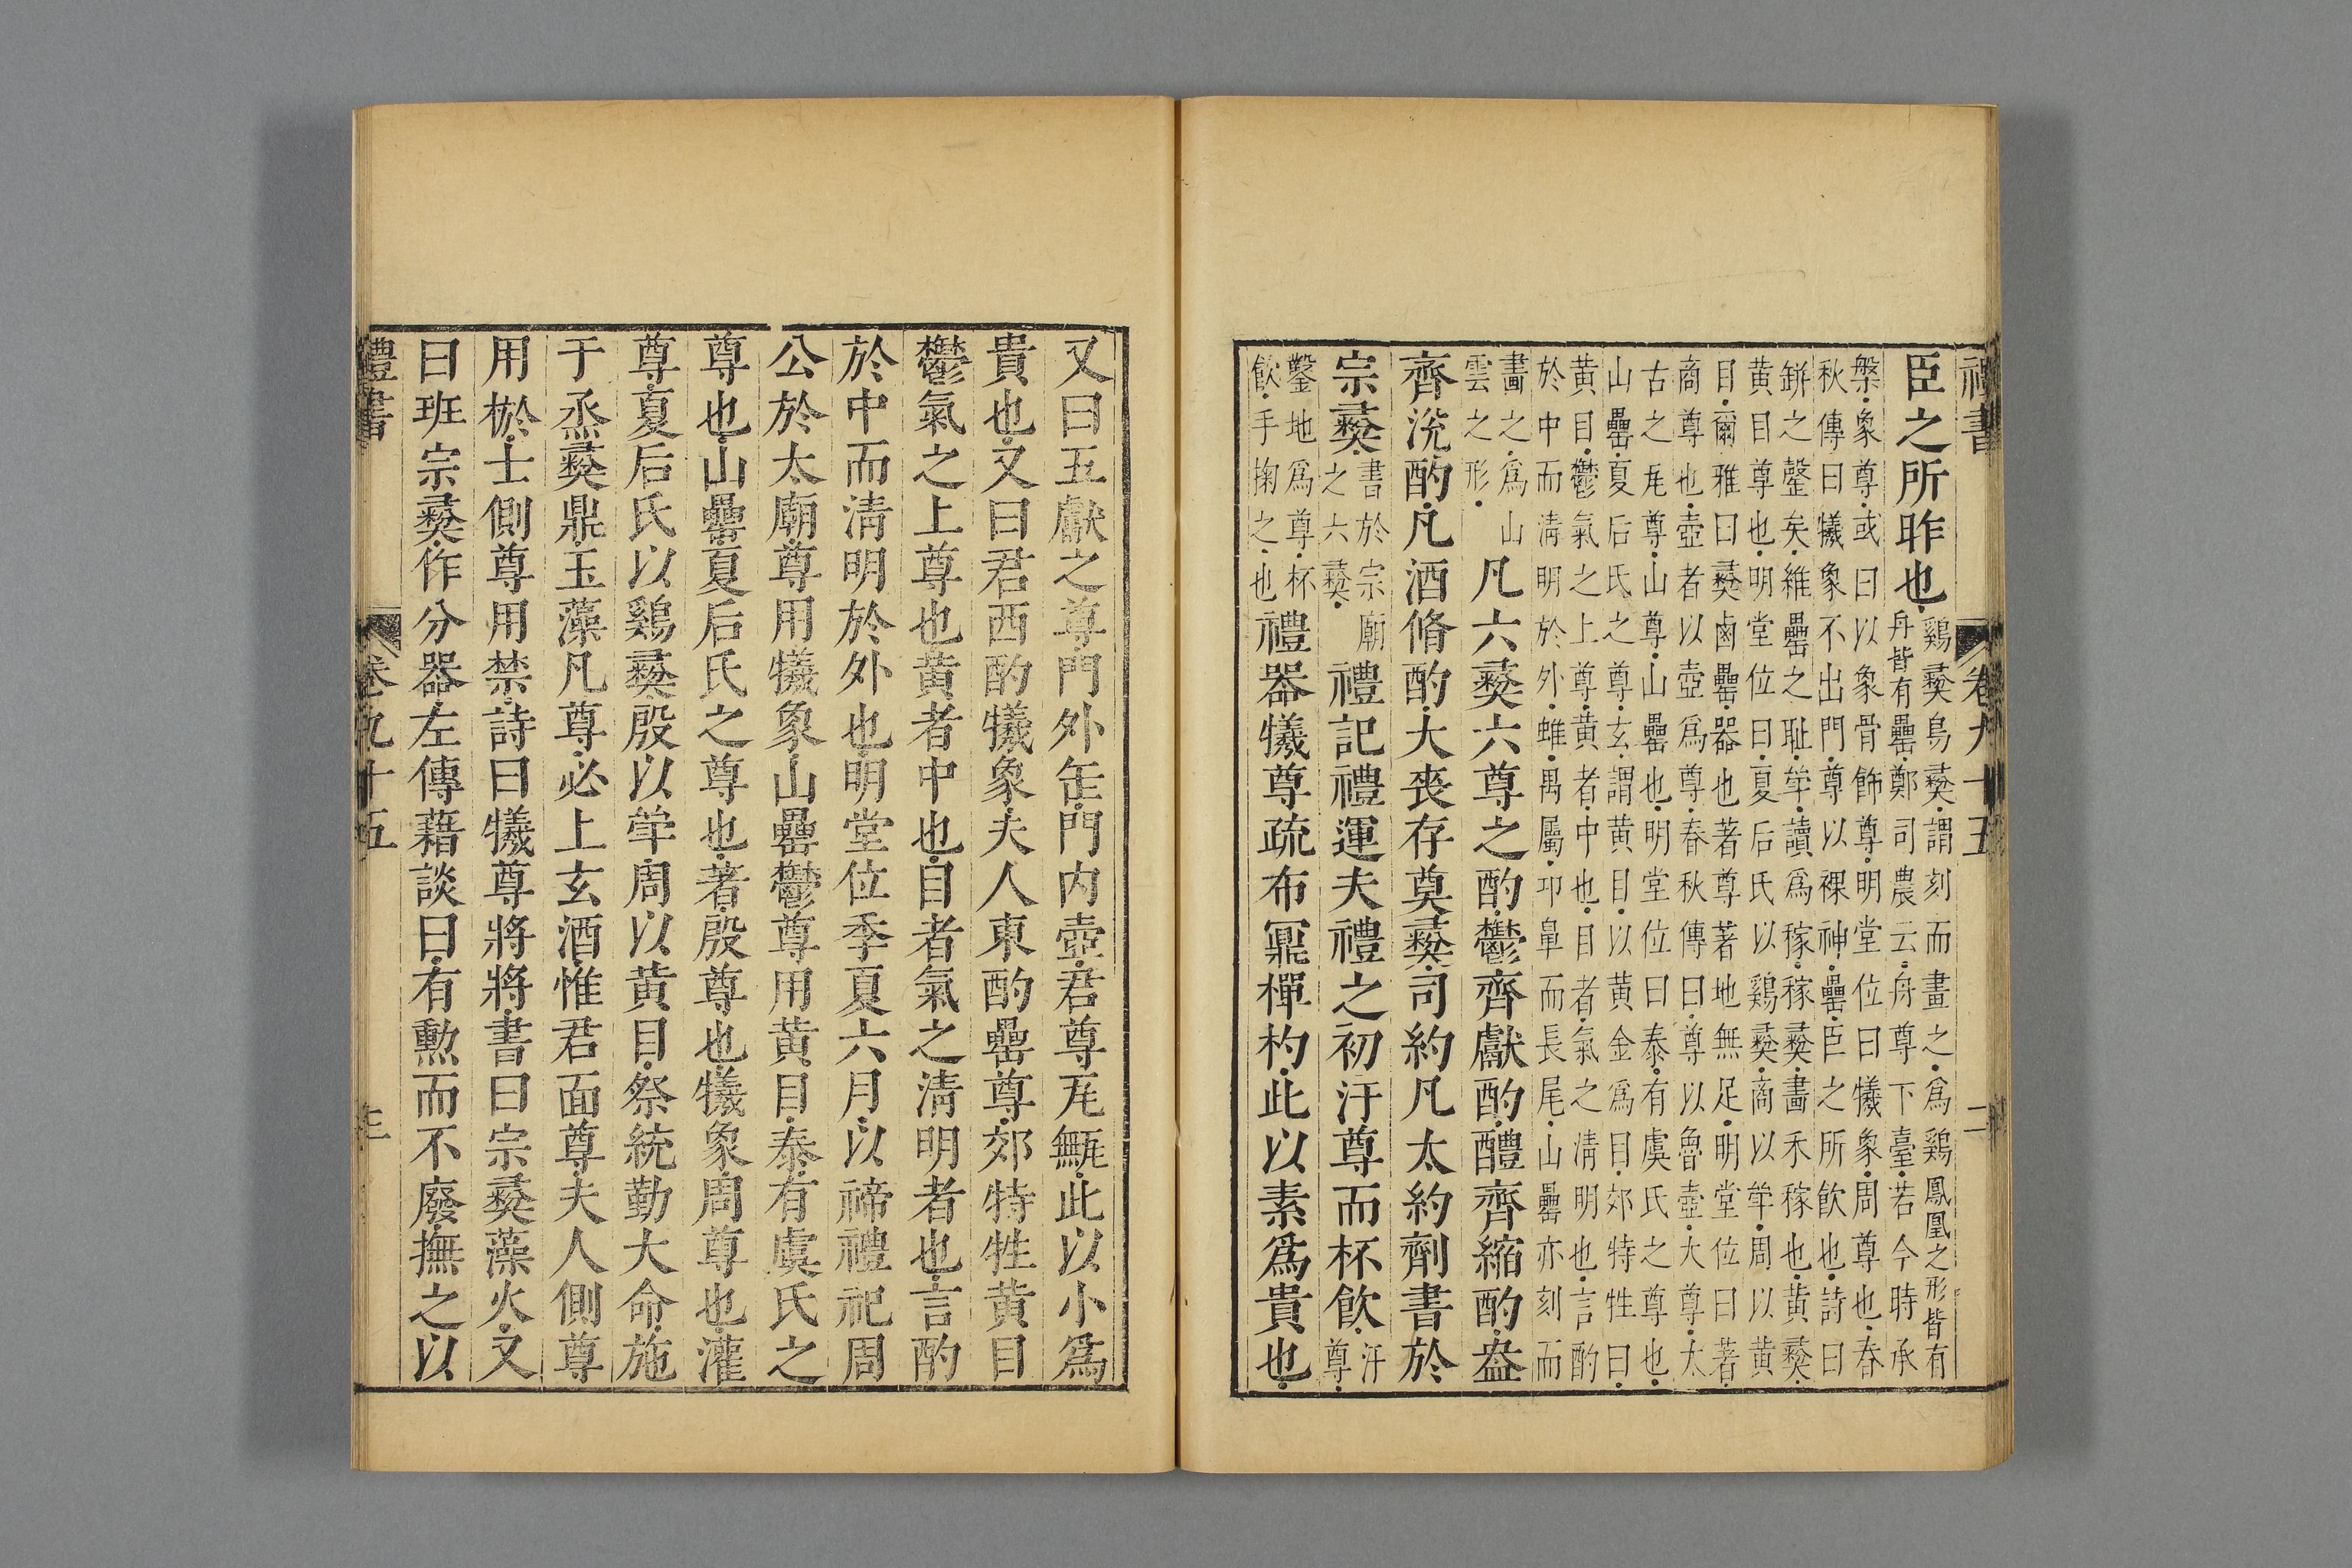 禮書　卷九十五　二
臣之所昨也鷄彝鳥彝謂刻而畫之爲鷄鳳凰之形皆有
舟皆有罍鄭司農云舟尊下臺若今時承
槃象尊或曰以象骨飾尊明堂位曰犧象周尊也春
秋傳曰犧象不出門尊以祼神罍臣之所飲也詩曰
缾之罄矣維罍之耻斝讀爲稼稼彝畫禾稼也黄彝
黄目尊也明堂位曰夏后氏以鷄彝商以斝周以黄
目爾雅曰彝鹵罍器也著尊著地無足明堂位曰著
商尊也壺者以壺爲尊春秋傳曰尊以魯壺大尊太
古之瓦尊山尊山罍也明堂位曰泰有虞氏之尊也
山罍夏后氏之尊玄謂黄目以黄金爲目郊特牲曰
黄目鬱氣之上尊黄者中也目者氣之清明也言酌
於中而清明於外蜼禺屬卬鼻而長尾山罍亦刻而
畫之爲山
雲之形
凡六彝六尊之酌鬱齊獻酌醴齊縮酌盎
齊涗酌凡酒脩酌大喪存奠彝司約凡太約劑書於
宗彝書於宗廟
之六彝
禮記禮運夫禮之初汙尊而杯飲汙
尊
鑿地爲尊杯
飲手掬之也
禮器犧尊疏布鼏樿杓此以素爲貴也
又曰五獻之尊門外缶門内壺君尊瓦甒此以小爲
貴也又曰君西酌犧象夫人東酌罍尊郊特牲黄目
鬱氣之上尊也黄者中也目者氣之清明者也言酌
於中而清明於外也明堂位季夏六月以禘禮祀周
公於太廟尊用犧象山罍鬱尊用黄目泰有虞氏之
尊也山罍夏后氏之尊也著殷尊也犧象周尊也灌
尊夏后氏以鷄彝殷以斝周以黄目祭統勤大命施
于烝彝鼎玉藻凡尊必上玄酒惟君面尊夫人側尊
用棜士側尊用禁詩曰犧尊將將書曰宗彝藻火又
曰班宗彝作分器左傳藉談曰有勲而不廢撫之以
禮書　卷九十五　三